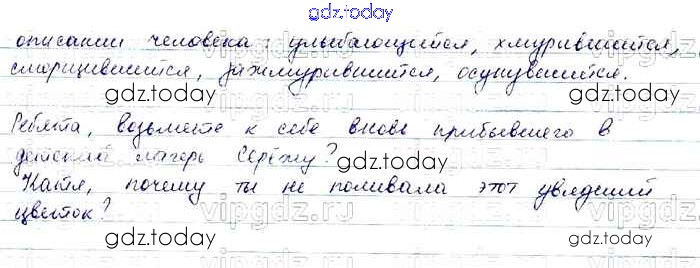 gdz.today
описании человека: улыбающийся, хмурившийся,
сморщившийся, зажмурившийся, осунувшийся.
gdz.today gdz.today
Ребята, возьмете к себе вновь прибывшего в
детский лагерь Серёжу?
gdz.today
Катя, почему ты не поливала этот увядший
цветок?
vipgdz.ru vipgdz.ru
gdz.today gdz.today